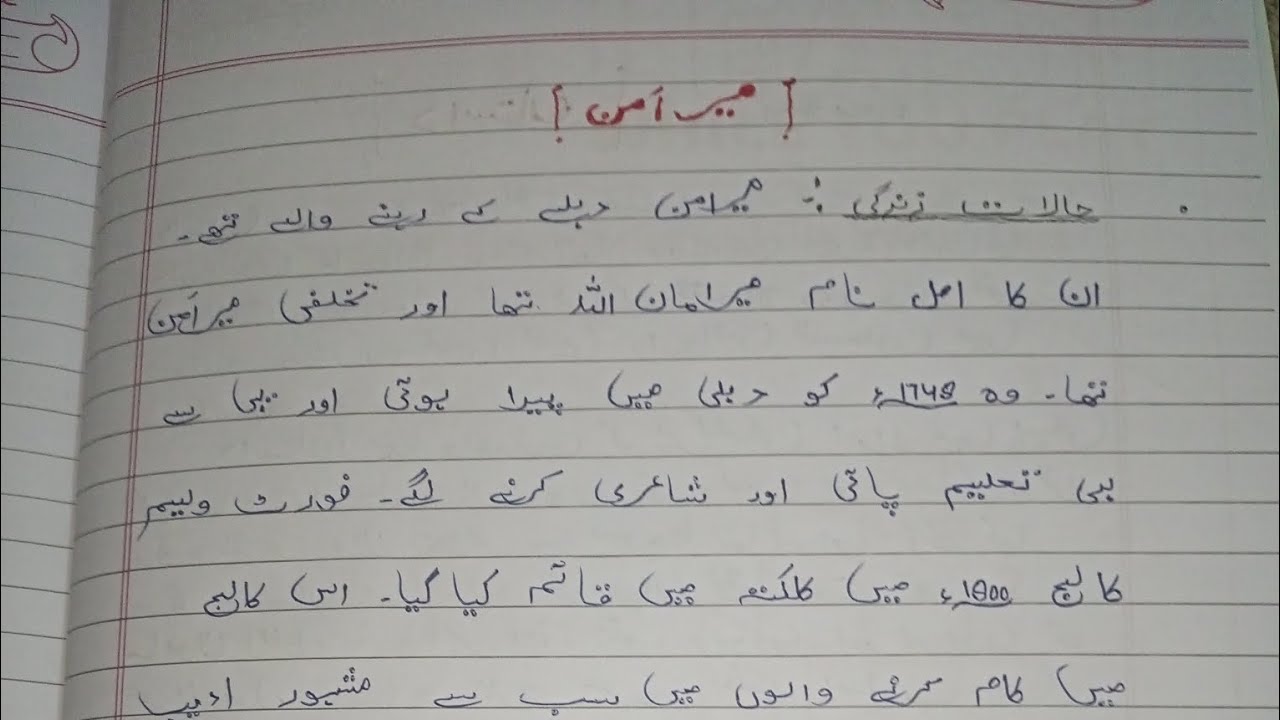 [ میر اَمن ]
۔ حالات زندگی :۔ میرامن دہلی کے رہنے والے تھے۔
ان کا اصل نام میرامان اللہ تھا اور تخلص میراَمن
تھا۔ وہ 1748ء کو دہلی میں پیدا ہوئی اور یہی سے
ہی تعلییم پائی اور شاعری کرنے لگے۔ فورٹ ولییم
کالج 1800ء میں کلکتہ میں قائم کیا گیا۔ اس کالج
میں کام کرنے والوں میں سب سے مشہور ادیب